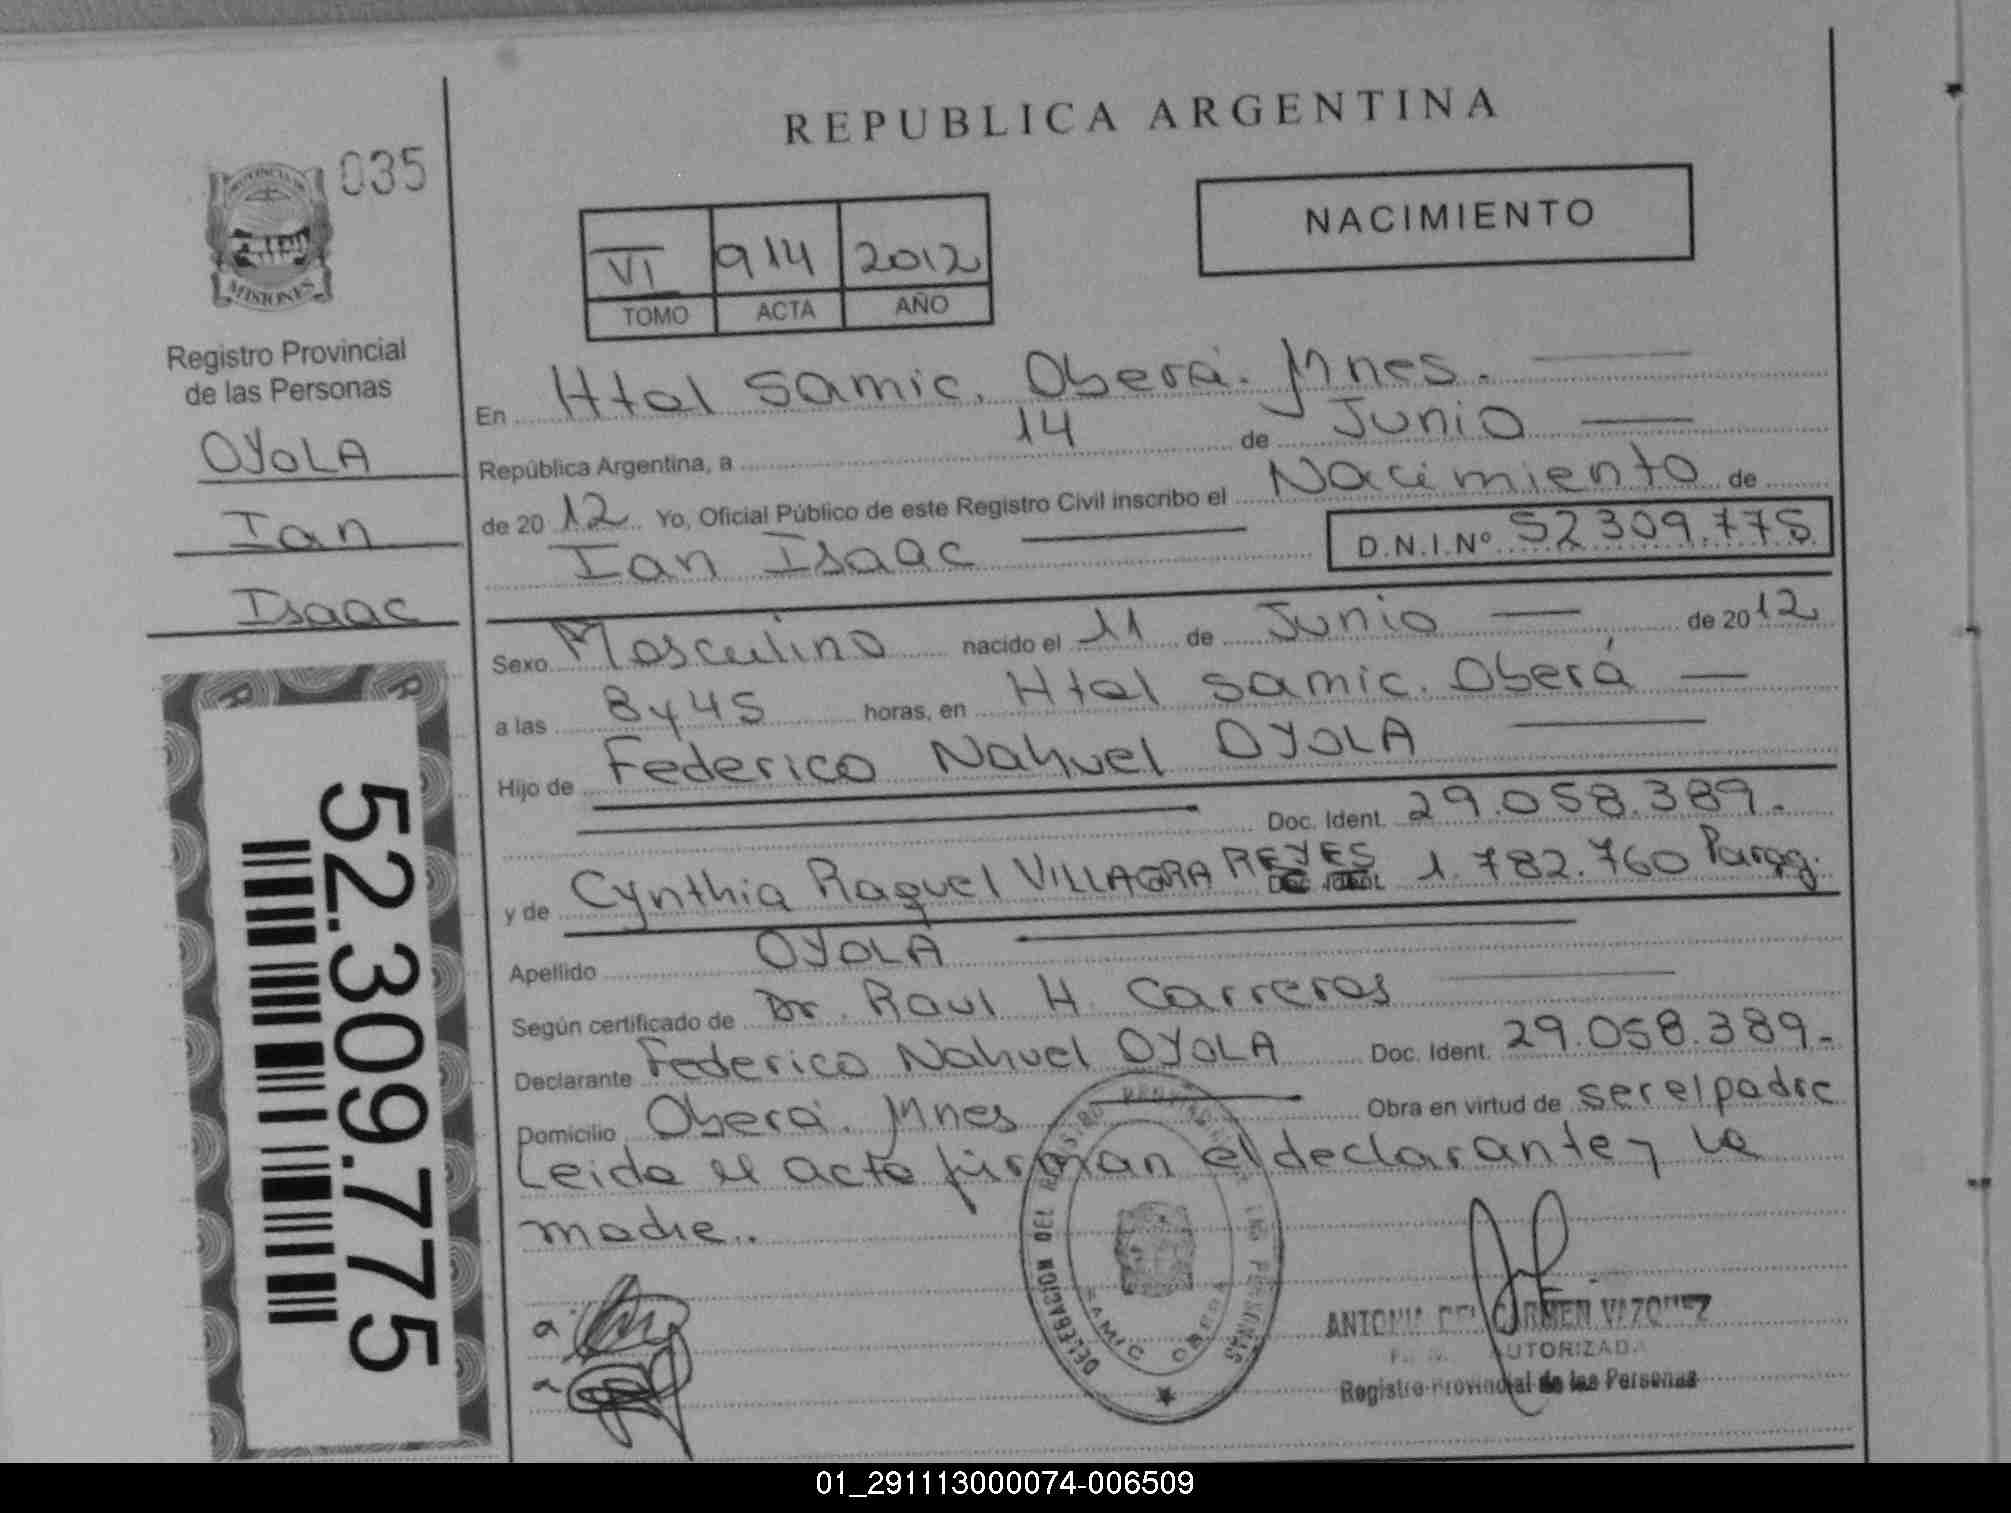 REPUBLICA ARGENTINA
035
PROVINCIA DE
MISIONES
Registro Provincial
de las Personas
OYOLA
Ian
Isaac
52.309.775
NACIMIENTO
VI 914 2012
TOMO ACTA AÑO
En Htal Samic. Oberá. Mnes.
República Argentina, a 14 de Junio
de 2012 Yo, Oficial Público de este Registro Civil inscribo el Nacimiento de
Ian Isaac D.N.I.Nº 52309.775
Sexo Masculino nacido el 11 de Junio de 2012
a las 8 y 45 horas, en Htal Samic. Oberá
Hijo de Federico Nahuel OYOLA
Doc. Ident. 29.058.389.-
y de Cynthia Raquel VILLAGRA REYES 1.782.760 Parag.
Apellido OYOLA
Según certificado de Dr. Raul H. Carreras
Declarante Federico Nahuel OYOLA Doc. Ident. 29.058.389.-
Domicilio Oberá. Mnes Obra en virtud de ser el padre
Leida el acta firman el declarante y la
madre..
DELEGACION DEL REGISTRO PROVINCIAL DE LAS PERSONAS
SAMIC OBERA
ANTONIA DEL CARMEN VAZQUEZ
AUTORIZADA
Registro Provincial de las Personas
01_291113000074-006509